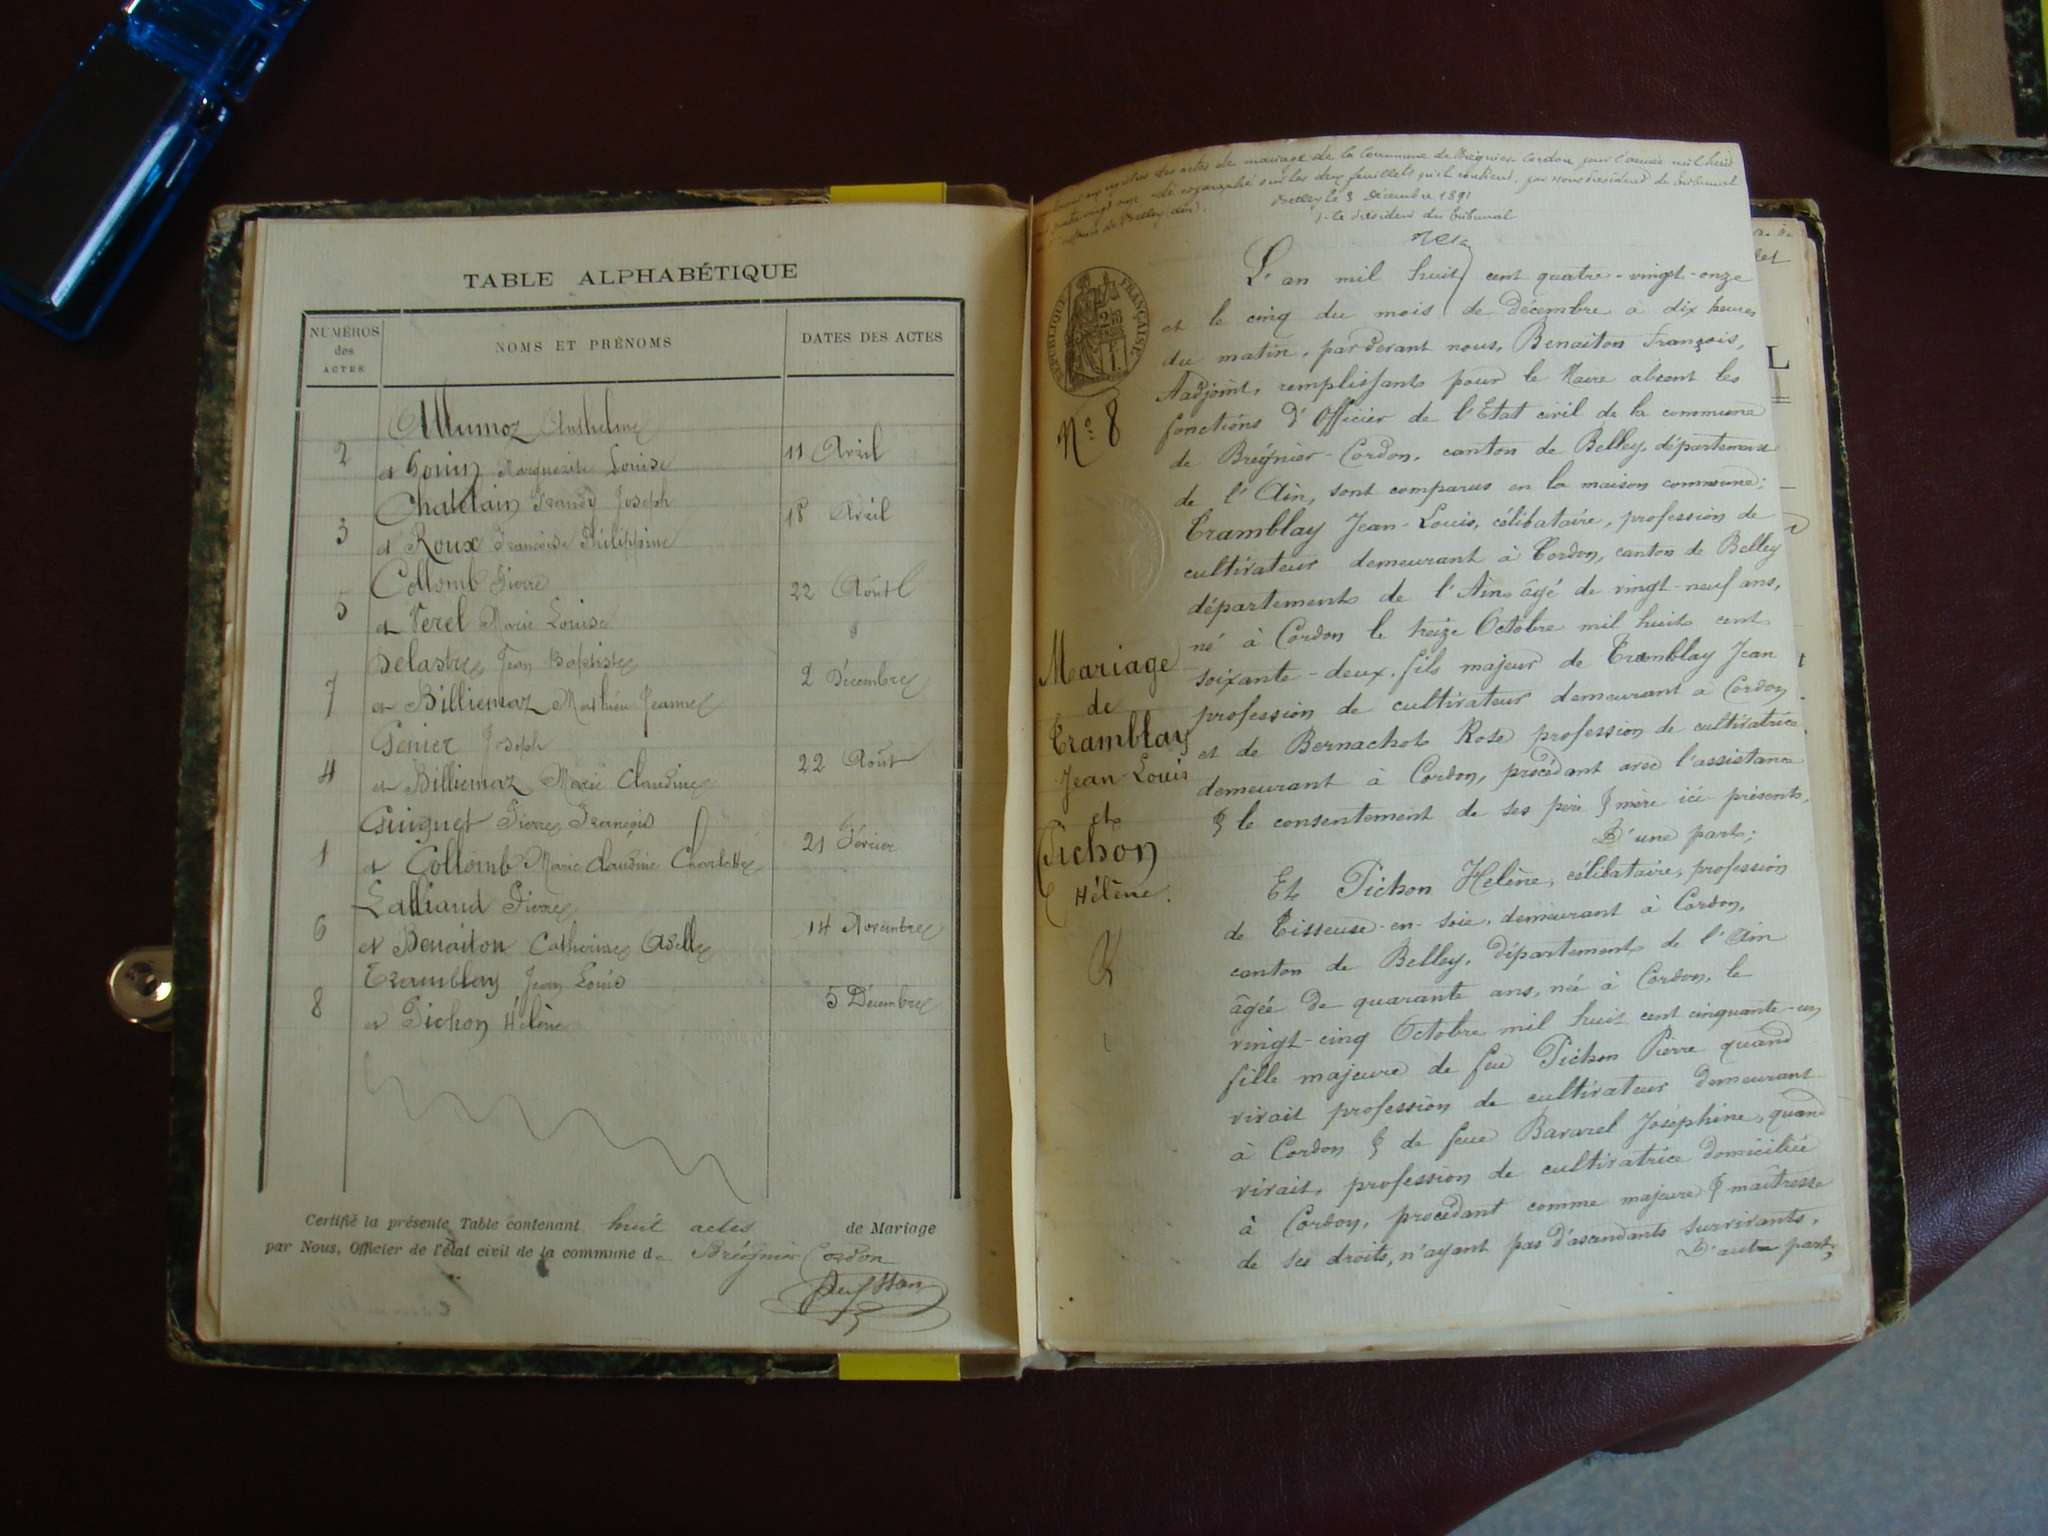 TABLE ALPHABÉTIQUE
NUMÉROS
des
ACTES
NOMS ET PRÉNOMS
DATES DES ACTES
Allumoz Anthelme
2 et Gonin Marguerite Louise 11 Avril
Chatelain Joseph
3 et Roux Françoise Philippine 18 Avril
Collomb Pierre
5 et Verel Marie Louise 22 Août
Delastre Jean Baptiste
7 et Billiemaz Jeanne 2 Décembre
Genier Joseph
4 et Billiemaz Marie Claudine 22 Août
Guiguet Pierre François
1 et Collomb Marie Claudine Charlotte 21 Février
Lalliaud Pierre
6 et Benaiton Catherine Adelle 14 Novembre
Tramblay Jean Louis
8 et Pichon Hélène 5 Décembre
Certifié la présente Table contenant huit actes de Mariage
par Nous, Officier de l'état civil de la commune de Brégnier Cordon
des actes de mariage de la Commune de Brégnier Cordon pour l'année mil huit
sur les deux feuillets qu'il contient, par nous Président du tribunal
de Belley
Belley le 3 Décembre 1891
le Président du tribunal
RÉPUBLIQUE FRANÇAISE
N° 8
Mariage
de
Tramblay
Jean-Louis
et
Pichon
Hélène.
L'an mil huit cent quatre-vingt-onze
et le cinq du mois de décembre à dix heures
du matin, par devant nous, Benaiton François,
Aadjoint, remplissant pour le Maire absent les
fonctions d'Officier de l'Etat civil de la commune
de Brégnier-Cordon, canton de Belley, département
de l'Ain, sont comparus en la maison commune;
Tramblay Jean-Louis, célibataire, profession de
cultivateur demeurant à Cordon, canton de Belley
département de l'Ain âgé de vingt-neuf ans,
né à Cordon le treize Octobre mil huit cent
soixante-deux, fils majeur de Tramblay Jean
profession de cultivateur demeurant à Cordon
et de Bernachot Rose profession de cultivatrice
demeurant à Cordon, procédant avec l'assistance
& le consentement de ses père & mère ici présents,
D'une part;
Et Pichon Helène, célibataire, profession
de Tisseuse-en-soie, demeurant à Cordon,
canton de Belley, département de l'Ain
âgée de quarante ans, née à Cordon, le
vingt-cinq Octobre mil huit cent cinquante-un
fille majeure de feu Pichon Pierre quand
vivait profession de cultivateur demeurant
à Cordon & de feue Bavarel Joséphine, quand
vivait, profession de cultivatrice domiciliée
à Cordon, procédant comme majeure & maîtresse
de ses droits, n'ayant pas d'ascendants survivants,
D'autre part;